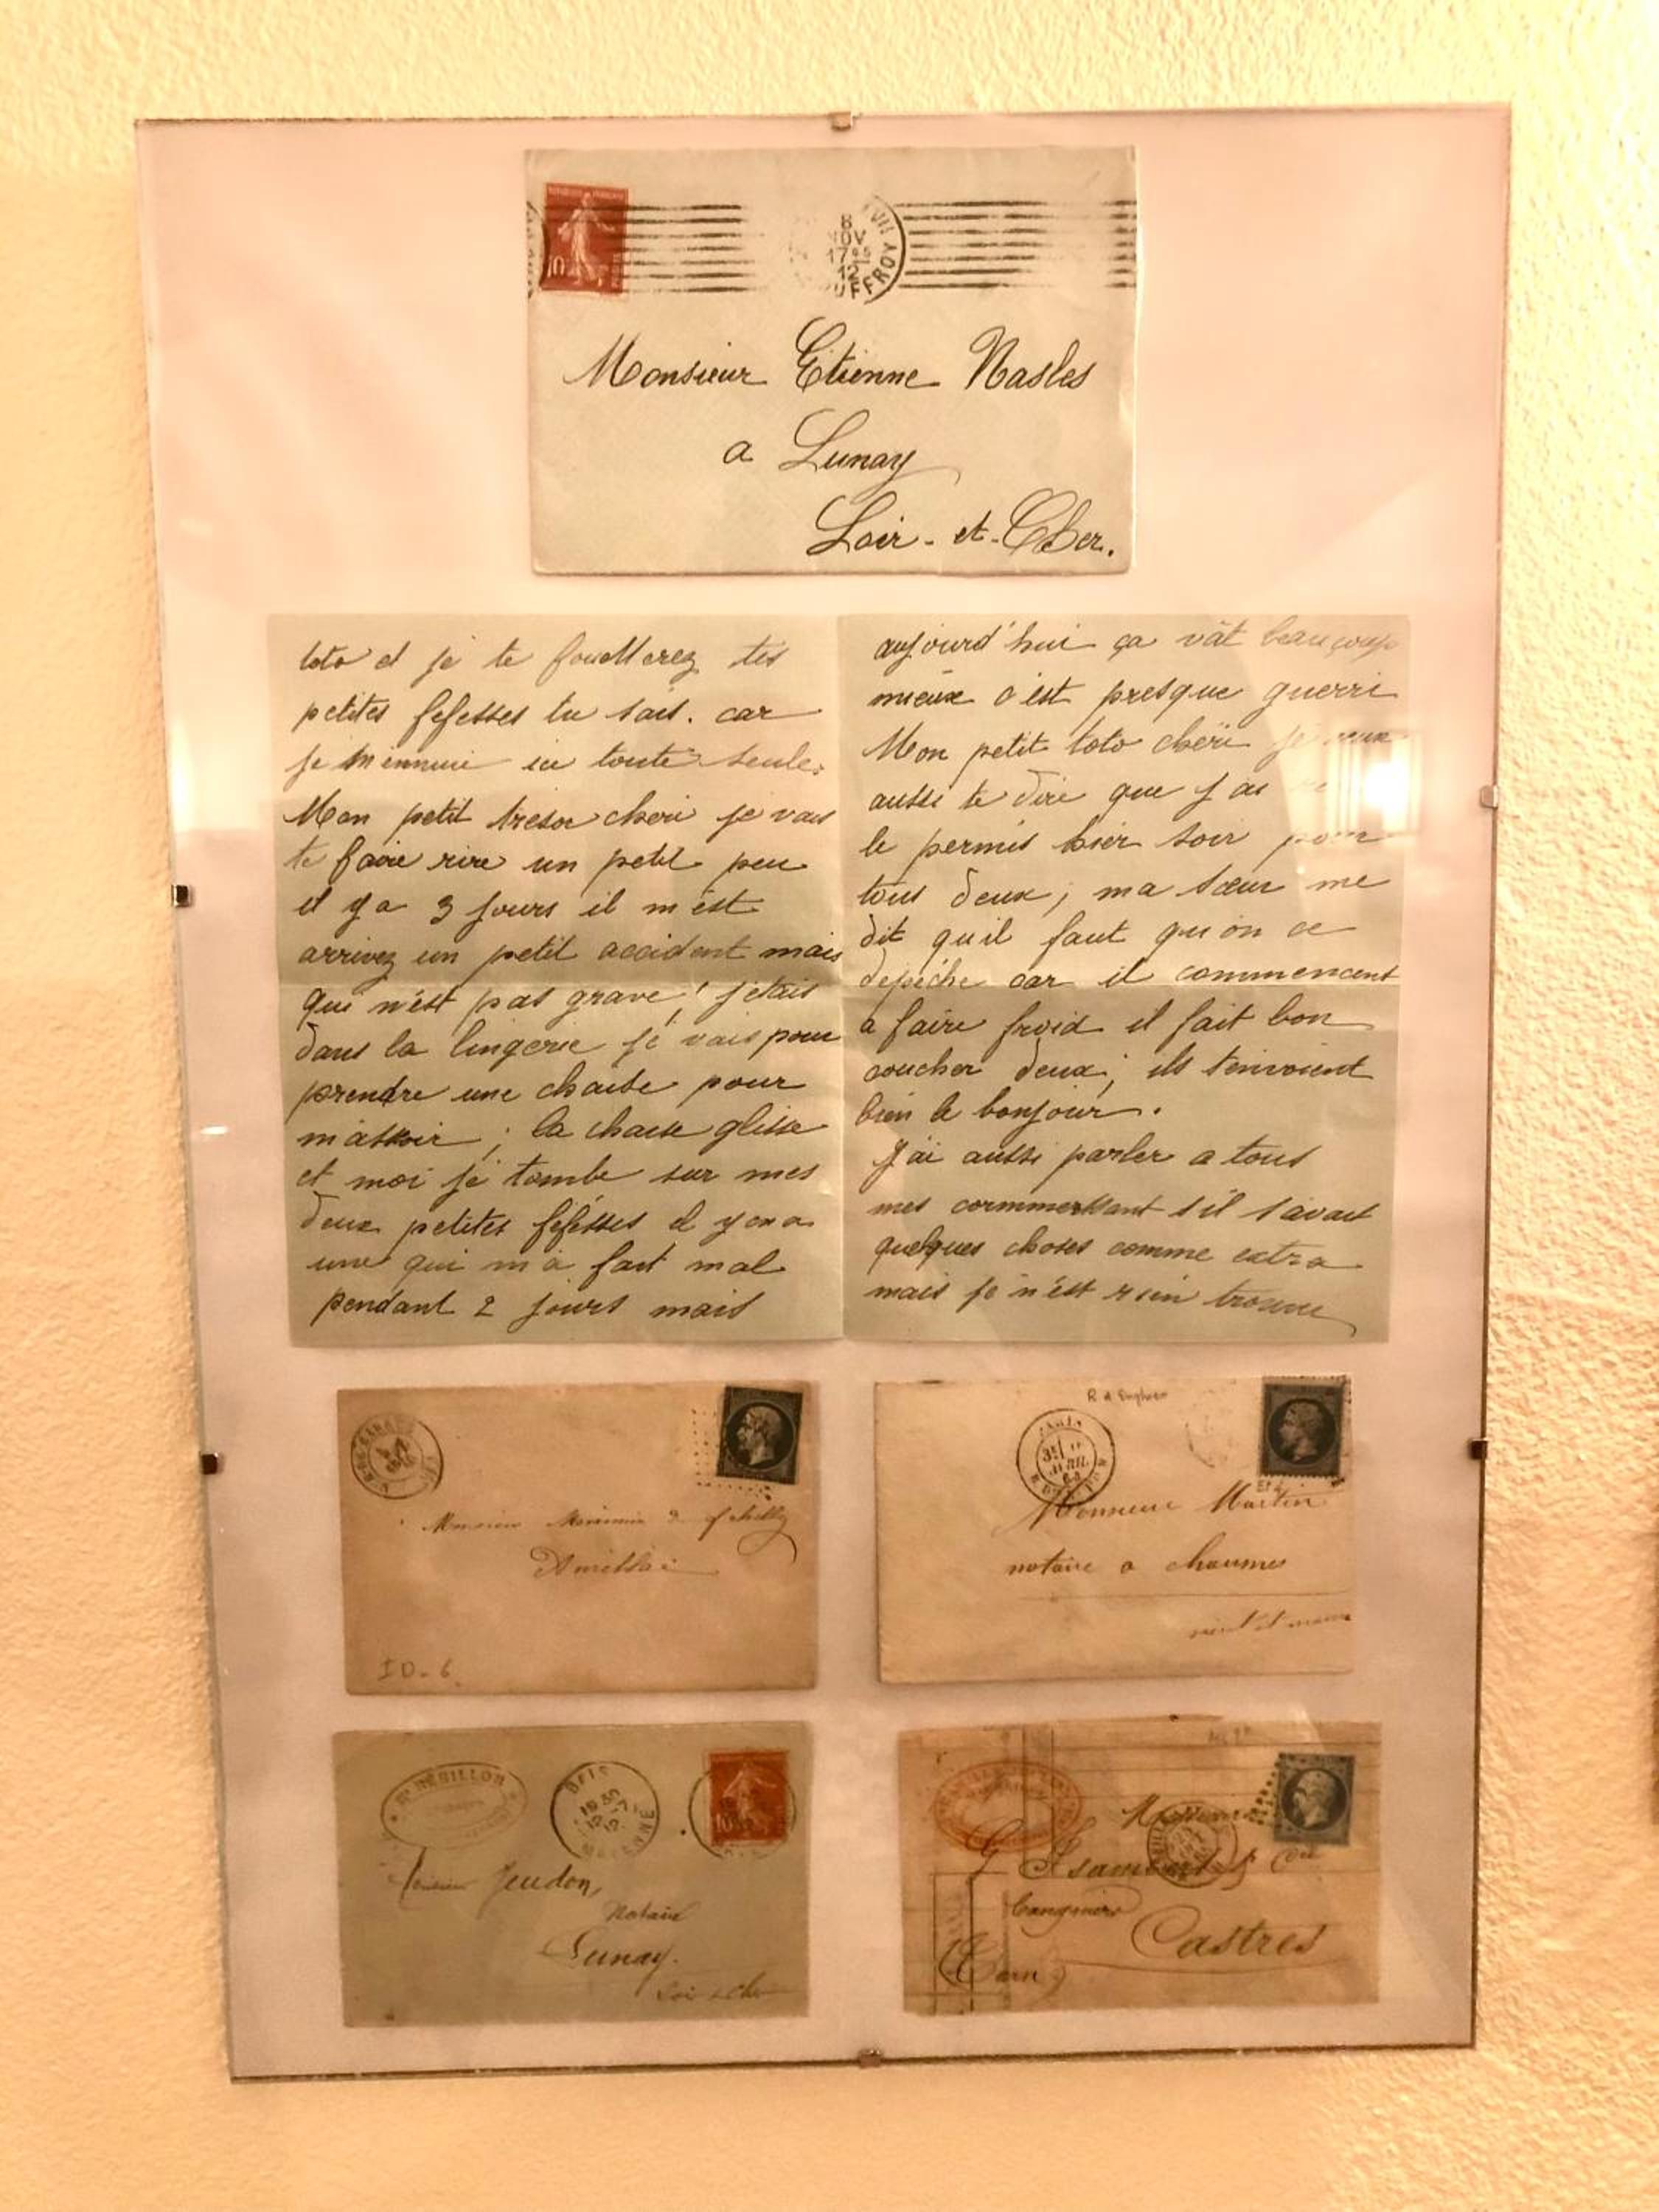 10
8
NOV
17
12
Monsieur Etienne Nasles
a Lunay
Loir-et-Cher.
toto et je te fouetterez tes
petites fefesses tu sais. car
je m'ennuie ici toute seule.
Mon petit tresor cheri je vais
te faire rire un petit peu
il y a 3 jours il m'est
arrivez un petit accident mais
qui n'est pas grave; j'etais
dans la lingerie je vais pour
prendre une chaise pour
m'assoir; la chaise glisse
et moi je tombe sur mes
deux petites fefesses il y en a
une qui m'a fait mal
pendant 2 jours mais
aujourd'hui ça vat beaucoup
mieux c'est presque guerri
Mon petit toto cheri je veux
aussi te dire que j'ai
le permis hier soir pour
tous deux; ma sœur me
dit qu'il faut qu'on ce
depeche car il commencent
a faire froid il fait bon
coucher deux; ils t'envoient
bien le bonjour.
J'ai aussi parler a tous
mes commersant s'il savait
quelques choses comme extra
mais je n'est rien trouve
ID-6
R d'Enghien
PARIS
AVRIL
Monsieur Martin
notaire a chaumes
seine et marne
10
MAYENNE
Jeudon,
Notaire
Lunay.
Loir & Cher
Castres
(Tarn)